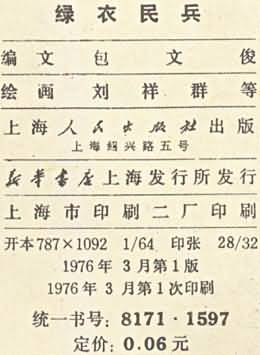 绿衣民兵
编文 包文俊
绘画 刘祥群等
上海人民出版社出版
上海绍兴路五号
新华书店上海发行所发行
上海市印刷二厂印刷
开本787×1092 1/64 印张 28/32
1976年 3月第1版
1976年 3月第1次印刷
统一书号：8171·1597
定价：0.06元